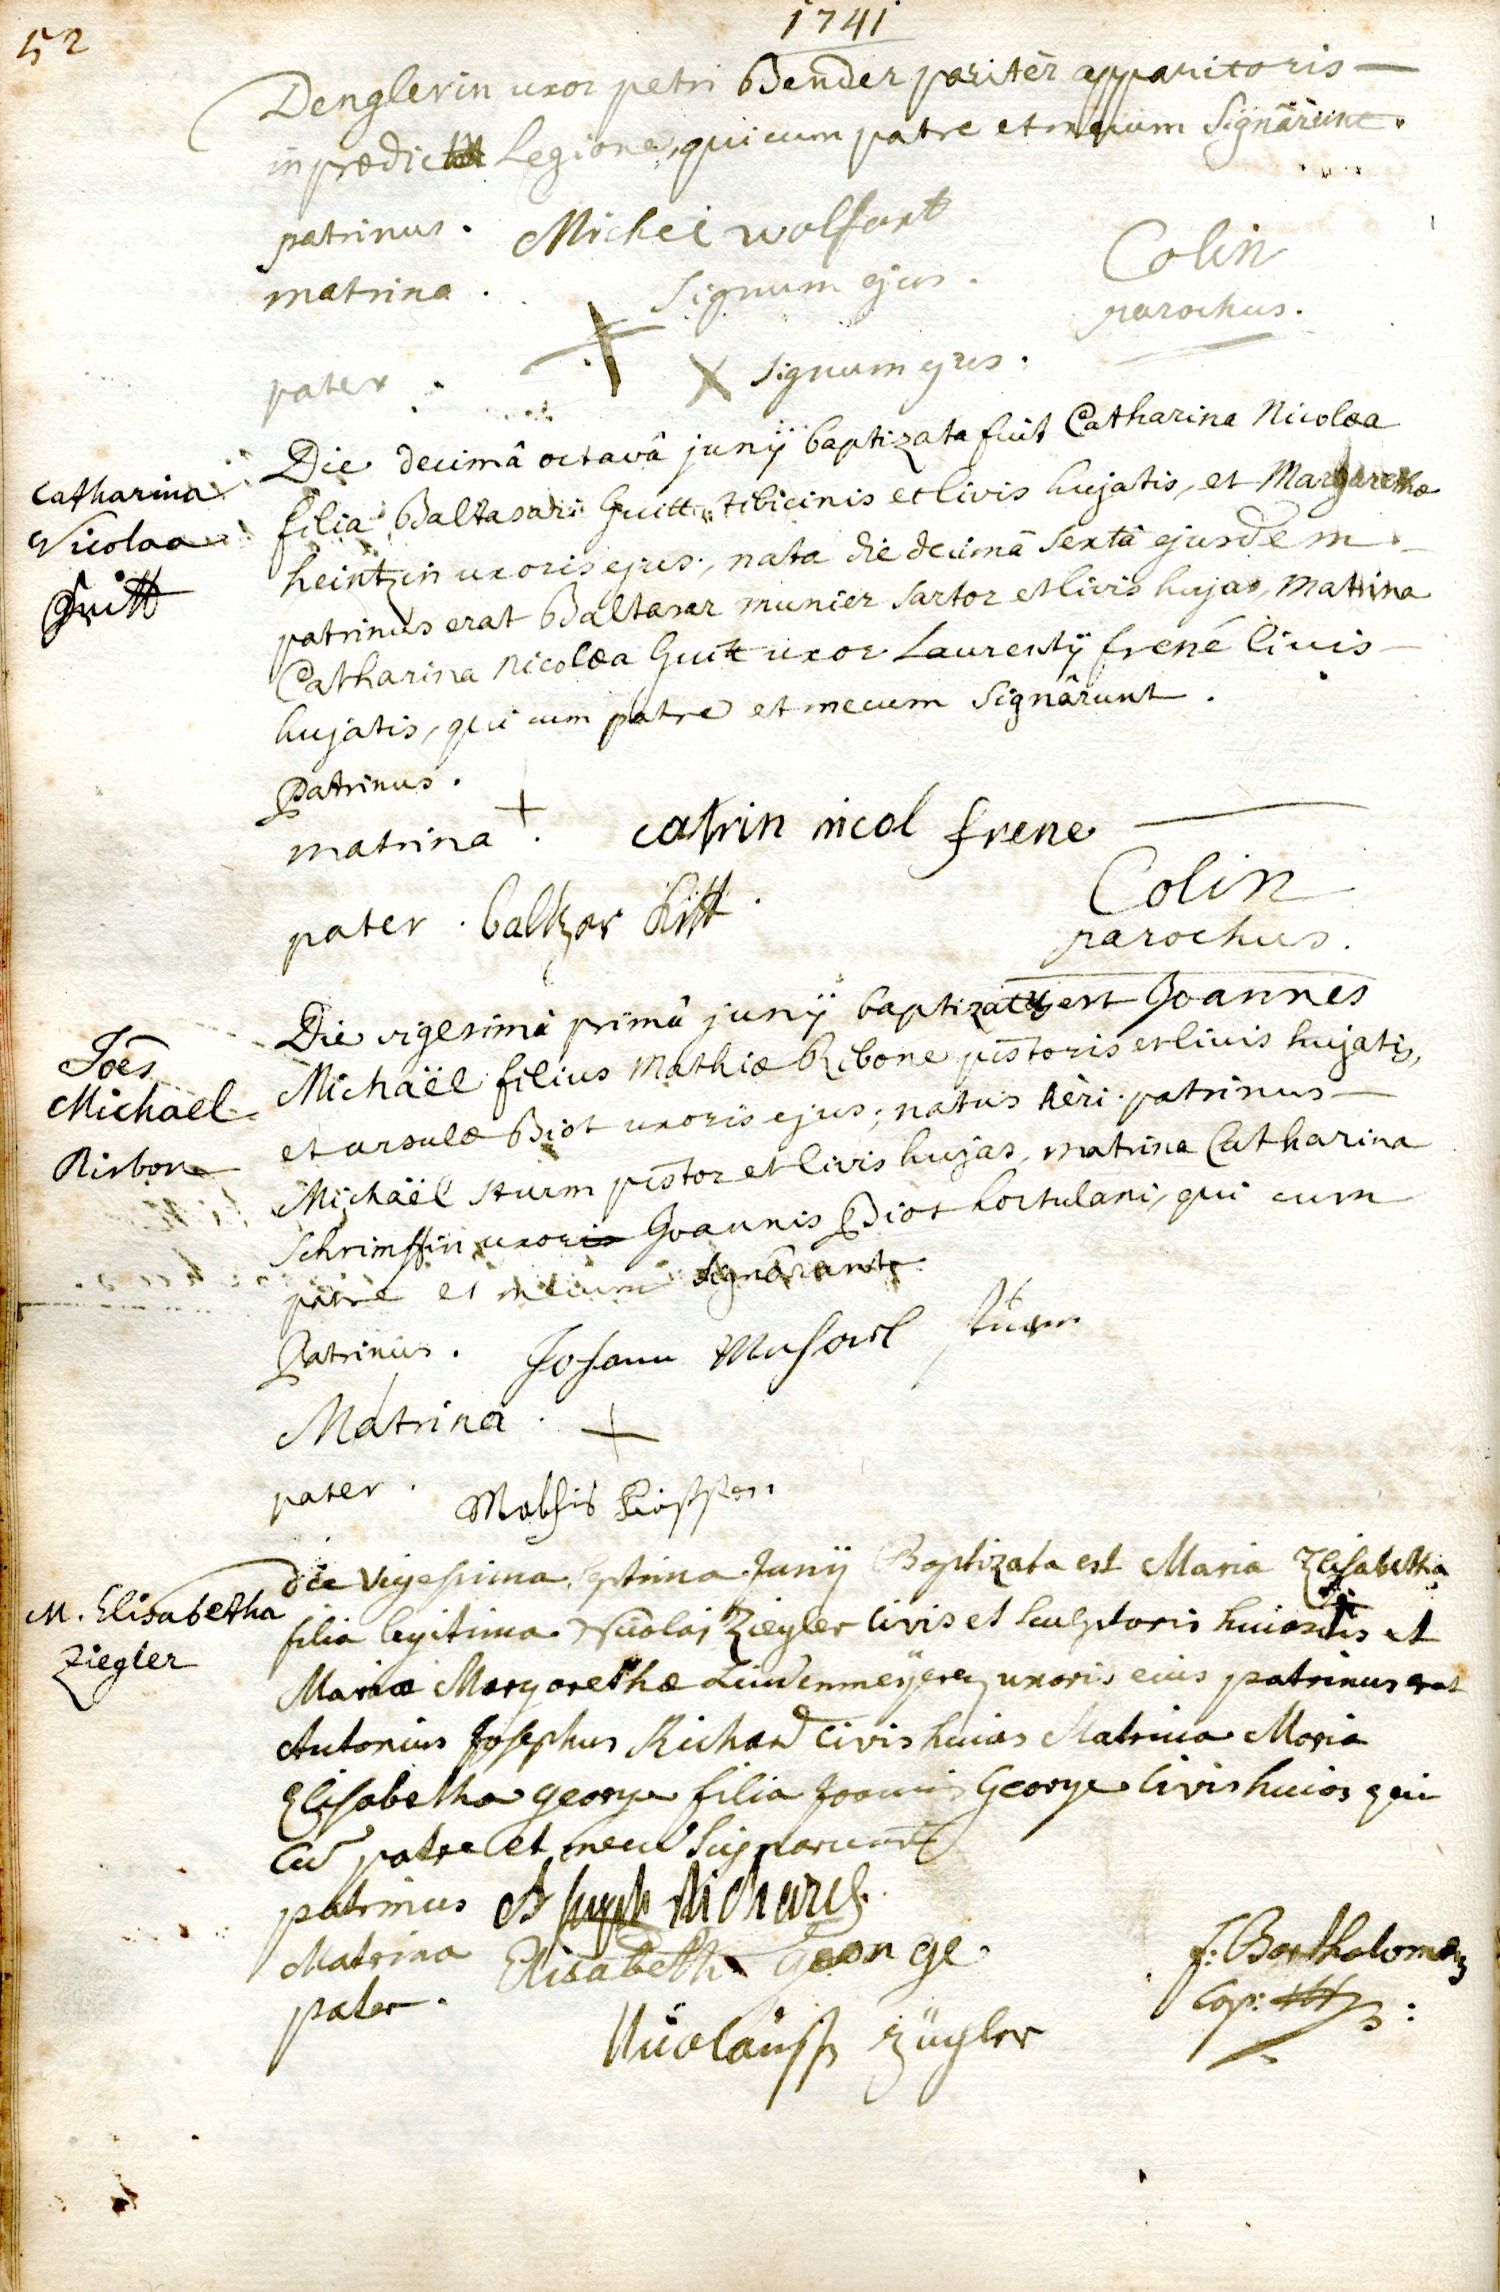 52
1741
Denglerin uxor petri Bender paritèr apparitoris
in prædicta Legione, qui cum patre et mecum Signârunt.
patrinus. Michel wolfart
Colin
matrina. Signum ejus.
parochus.
pater. signum ejus.
Catharina
Nicolaa
Guitt
Die decimâ octavâ junÿ baptizata fuit Catharina Nicolæa
filia Baltasari Guitt tibicinis et Civis hujatis, et Margarethæ
heintzin uxoris ejus, nata die decimâ sextâ ejusdem
patrinus erat Baltasar munier Sartor et Civis hujas, Matrina
Catharina Nicolæa Guitt uxor Laurentÿ frené Civis
hujatis, qui cum patre et mecum Signârunt.
Patrinus. +
matrina. catrin nicol frene
Colin
pater. baltzar Kitt.
parochus.
Joēs
Michaël
Risbone
Die vigesimâ primâ junÿ baptizatus est Joannes
Michäël filius Mathiæ Ribone pistoris et Civis hujatis,
et ursulæ Biot uxoris ejus, natus hèri. patrinus
Michäël Sturm pistor et Civis hujas, matrina Catharina
Schrimffin uxor Joannis Biot hortulani, qui cum
patre et mecum Signârunt.
Patrinus. Johann
Matrina. +
pater.
M. Elisabetha
Ziegler
die vigesima septima Junÿ Baptizata est Maria Elisabetha
filia legitima Nicolaj Ziegler Civis et sculptoris huiatis et
Mariæ Margarethæ uxoris eius patrinus erat
Antonius Josephus Richard Civis huias Matrina Maria
Elisabetha george filia Joannis George Civis huias qui
cū patre et mecū Signarunt
patrinus A Joseph Richard.
Matrina Elisabetha George.
f: Bartholomæus
pater. Nicolauss Ziegler
Cap: